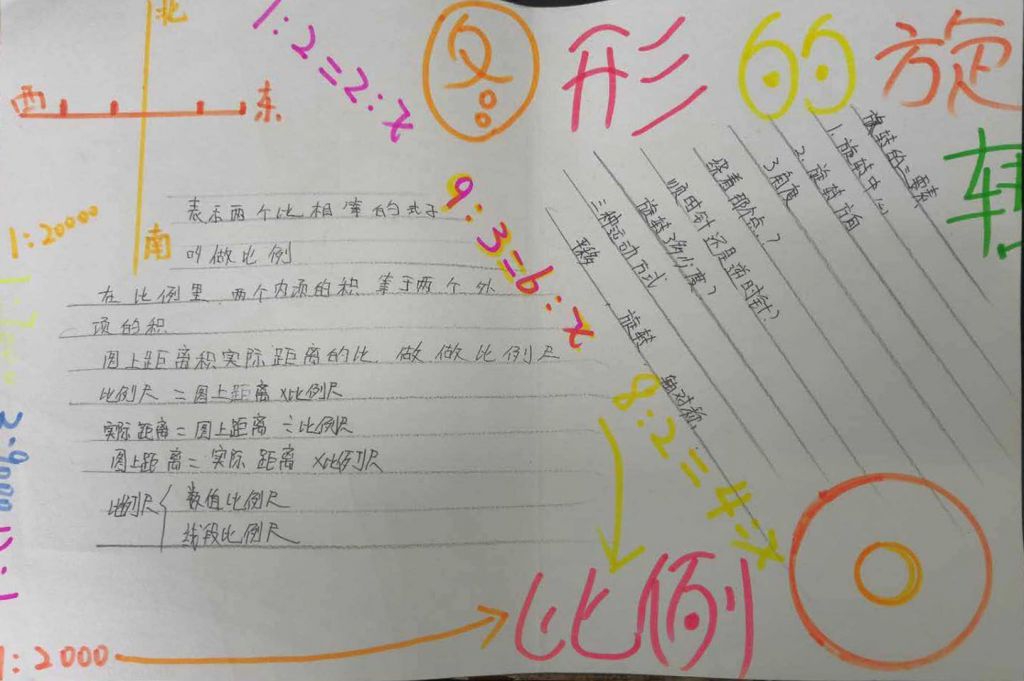 图形的旋
转
北
西 东
南
1:2=2:x
9:3=6:x
8:2=4:x
1:20000
1:2000
比例
表示两个比相等的式子
叫做比例
在比例里,两个内项的积等于两个外
项的积
图上距离积实际距离的比,做做比例尺
比例尺=图上距离×比例尺
实际距离=图上距离÷比例尺
图上距离=实际距离×比例尺
比例尺{数值比例尺
线段比例尺
旋转的三要素
1.旋转中心
2.旋转方向
3角度
绕着那个点?
顺时针还是逆时针?
旋转多少度?
三种运动方式
平移,旋转,轴对称,